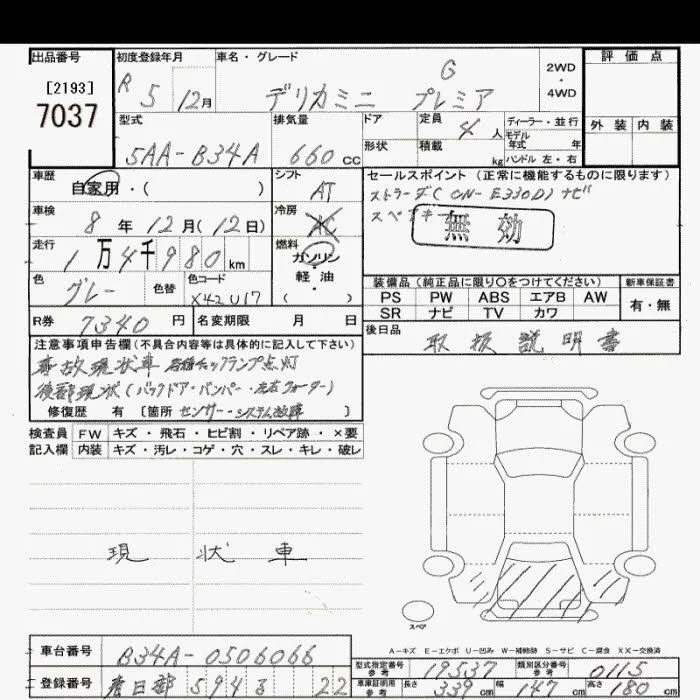 出品番号 初度登録年月 車名・グレード 評価点
[2193]
7037
R 5 12月 デリカミニ G プレミア 2WD・4WD
型式 排気量 ドア 定員 4人 ディーラー・並行 外装 内装
5AA-B34A 660cc 形状 積載 kg モデル年式 年 ハンドル 左・右
車歴 自家用・( ) シフト AT セールスポイント(正常に機能するものに限ります)
ストラーダ(CN-E330D)ナビ
車検 8年12月(12日) 冷房 AC スペアキー
無効
走行 1万4千980km 燃料 ガソリン・軽油( )
色 グレー 色替 色コード X42 U17
装備品(純正品に限り○をつけてください) 新車保証書
PS PW ABS エアB AW 有・無
SR ナビ TV カワ
R券 7340円 名変期限 月 日 後日品 取扱説明書
注意事項申告欄(不具合内容等は具体的に記入して下さい)
事故現状車 各種チェックランプ点灯
後部現状(バックドア・バンパー・左右クォーター)
修復歴 有 [箇所 センサー・システム故障 ]
検査員 FW キズ・飛石・ヒビ割・リペア跡・×要
記入欄 内装 キズ・汚レ・コゲ・穴・スレ・キレ・破レ
現状車
スペア
A-キズ E-エクボ U-凹み W-補修跡 S-サビ C-腐食 XX-交換済
車台番号 B34A-0506066 型式指定番号 参考 19537 類別区分番号 参考 0115
登録番号 春日部 594 22 車庫証明用 参考 長さ 339cm 幅 147cm 高さ 180cm